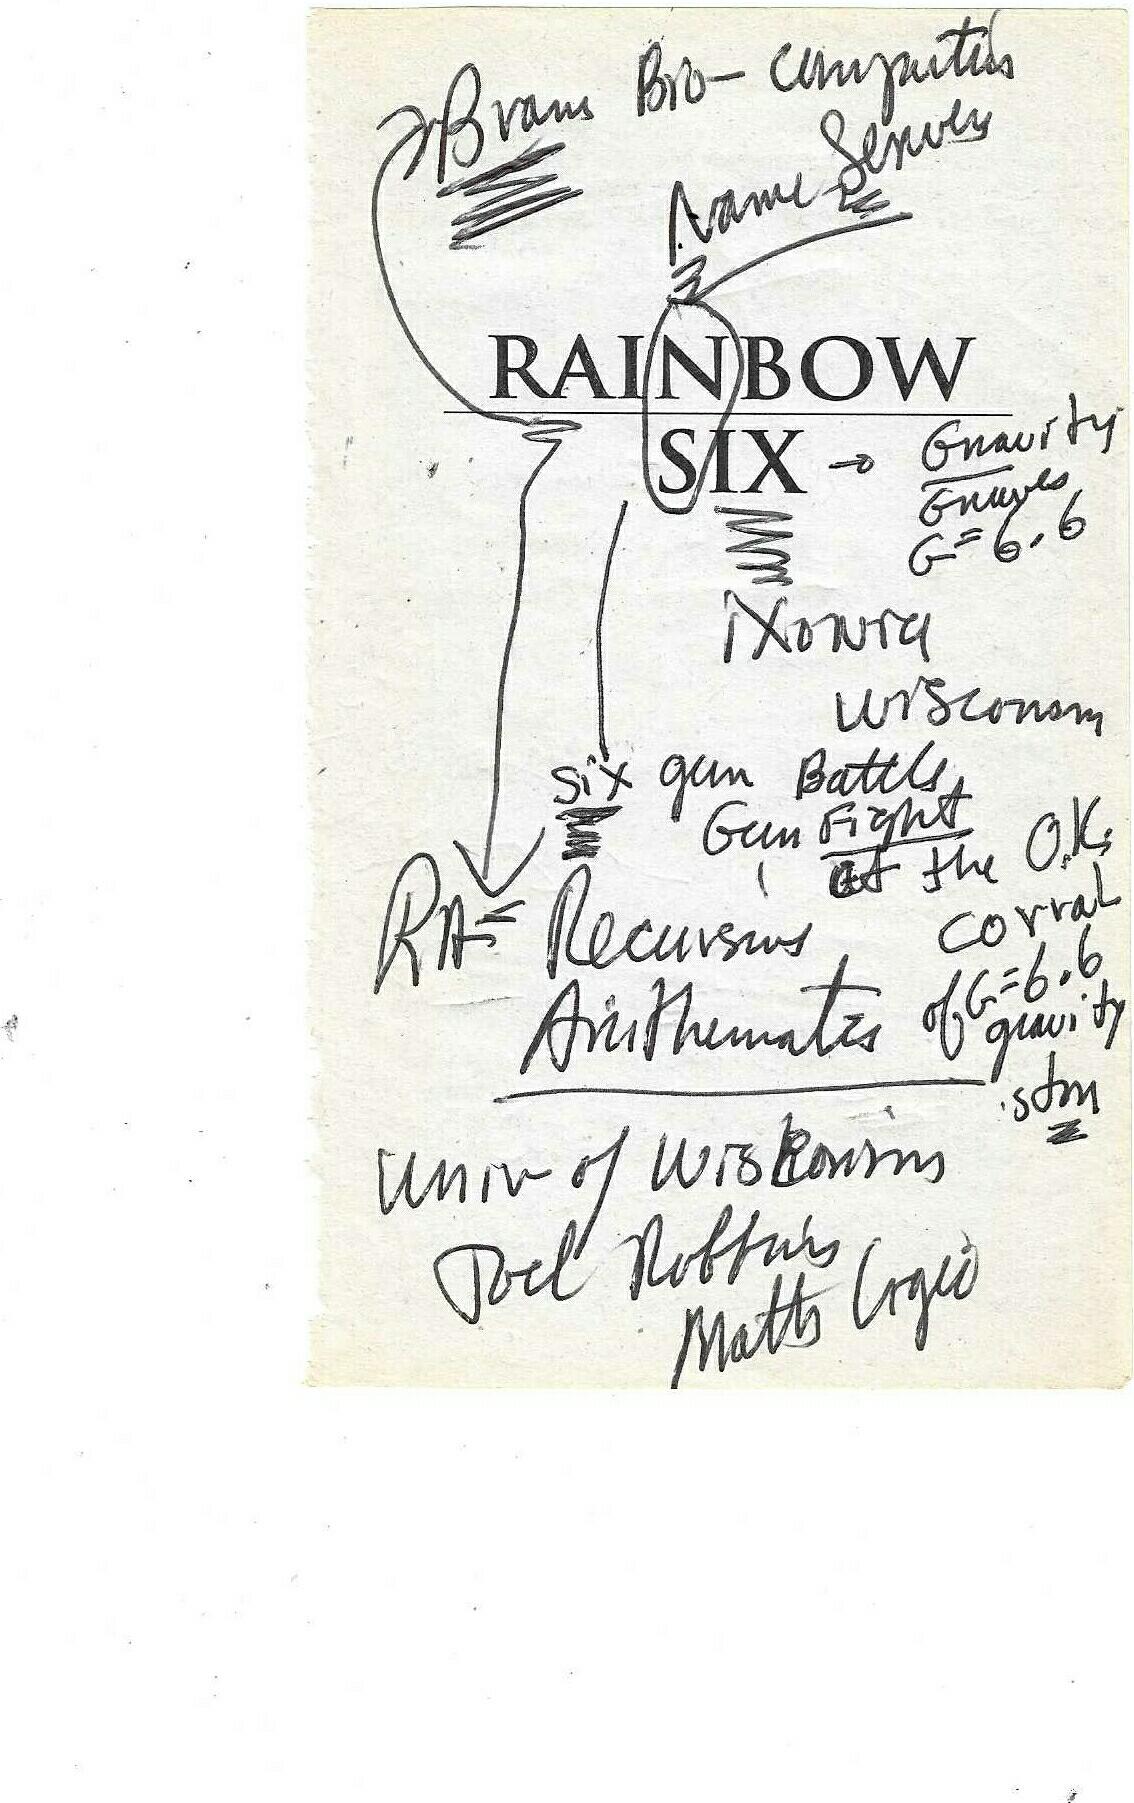 Brain Bio-computers
Name Servers
RAINBOW
SIX → Gravity
Graves
G=6.6
iXonia
Wisconsin
Six gun Battle
Gun Fight
at the O.K.
corral
RA= Recursive
of G=6.6
Arithematics gravity
.stm
Univ of Wiskonsins
Joel Robbins
Matts